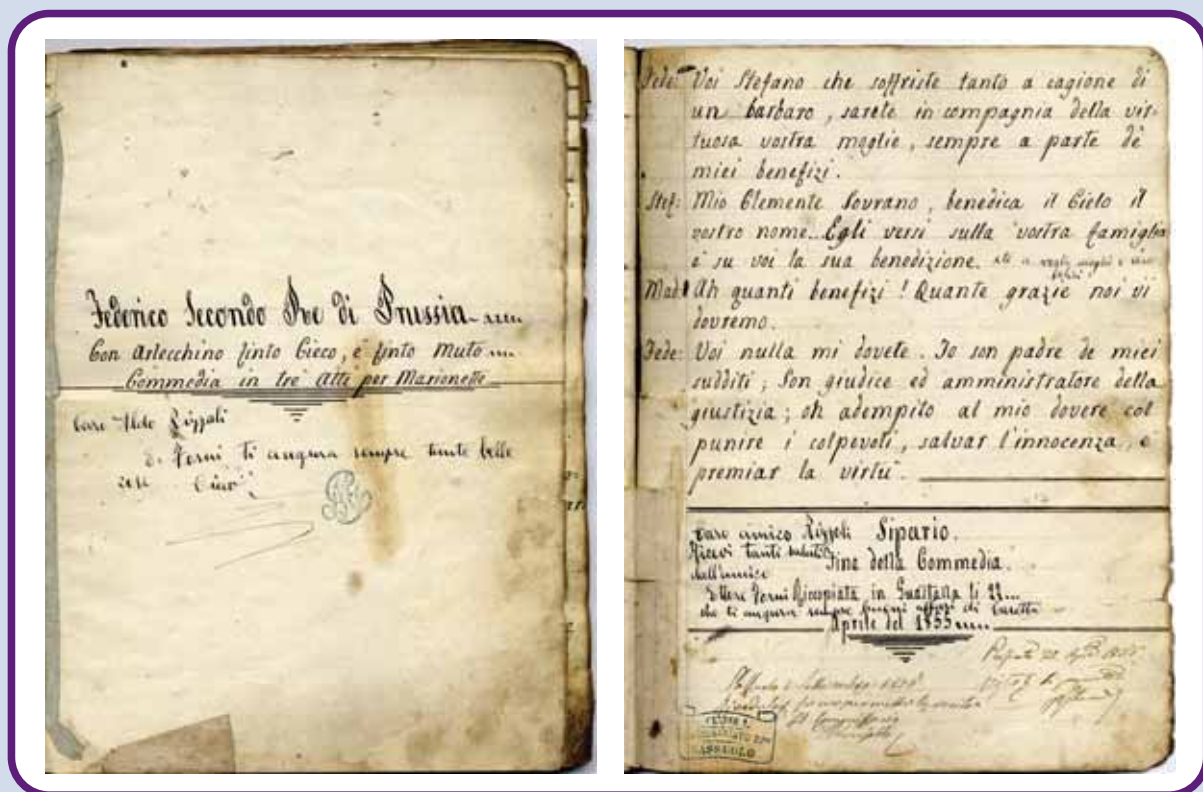 Federico Secondo Re di Prussia
Con Arlecchino finto Cieco, e finto Muto
Commedia in tre Atti per Marionette
Caro Aldo Rizzoli
Forni ti augura sempre tante belle
cose Ciao
Fede: Voi Stefano che soffriste tanto a cagione di
un barbaro, sarete in compagnia della vir-
tuosa vostra moglie, sempre a parte dè
miei benefizi.
Stef: Mio Clemente Sovrano, benedica il Cielo il
vostro nome... Egli versi sulla vostra famiglia
e su voi la sua benedizione.
Mad: Ah quanti benefizi! Quante grazie noi vi
dovremo.
Fede: Voi nulla mi dovete. Io son padre de miei
sudditi; Son giudice ed amministratore della
giustizia; oh adempito al mio dovere col
punire i colpevoli, salvar l'innocenza, e
premiar la virtù.
Caro amico Rizzoli Sipario.
Ricevi tanti saluti Fine della Commedia.
dall'amico
Ettore Forni Ricopiata in Guastalla li 22...
che ti augura sempre buoni affari di
Aprile del 1855
SASSUOLO